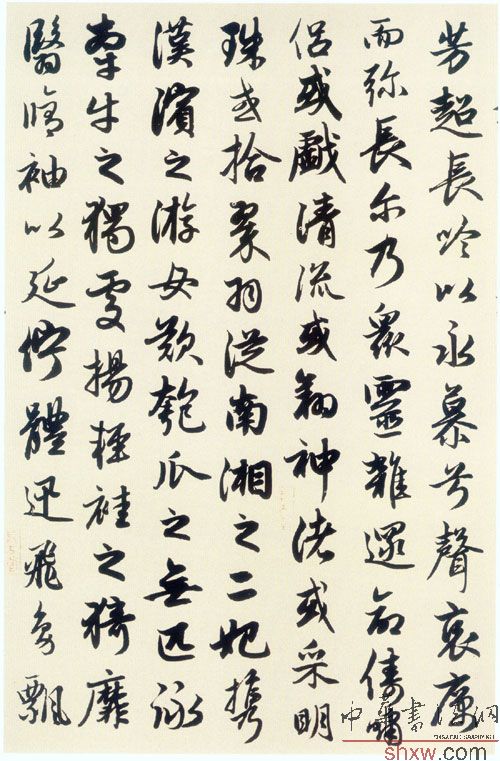 芳超長吟以永慕兮聲哀厲
而弥長尔乃衆靈雜遝命儔嘯
侣或戲清流或翔神渚或采明
珠或拾翠羽從南湘之二妃携
漢濱之游女歎匏瓜之無匹詠
牽牛之獨處揚輕袿之猗靡
翳脩袖以延佇體迅飛鳧飄
中華書法網
shxw.com